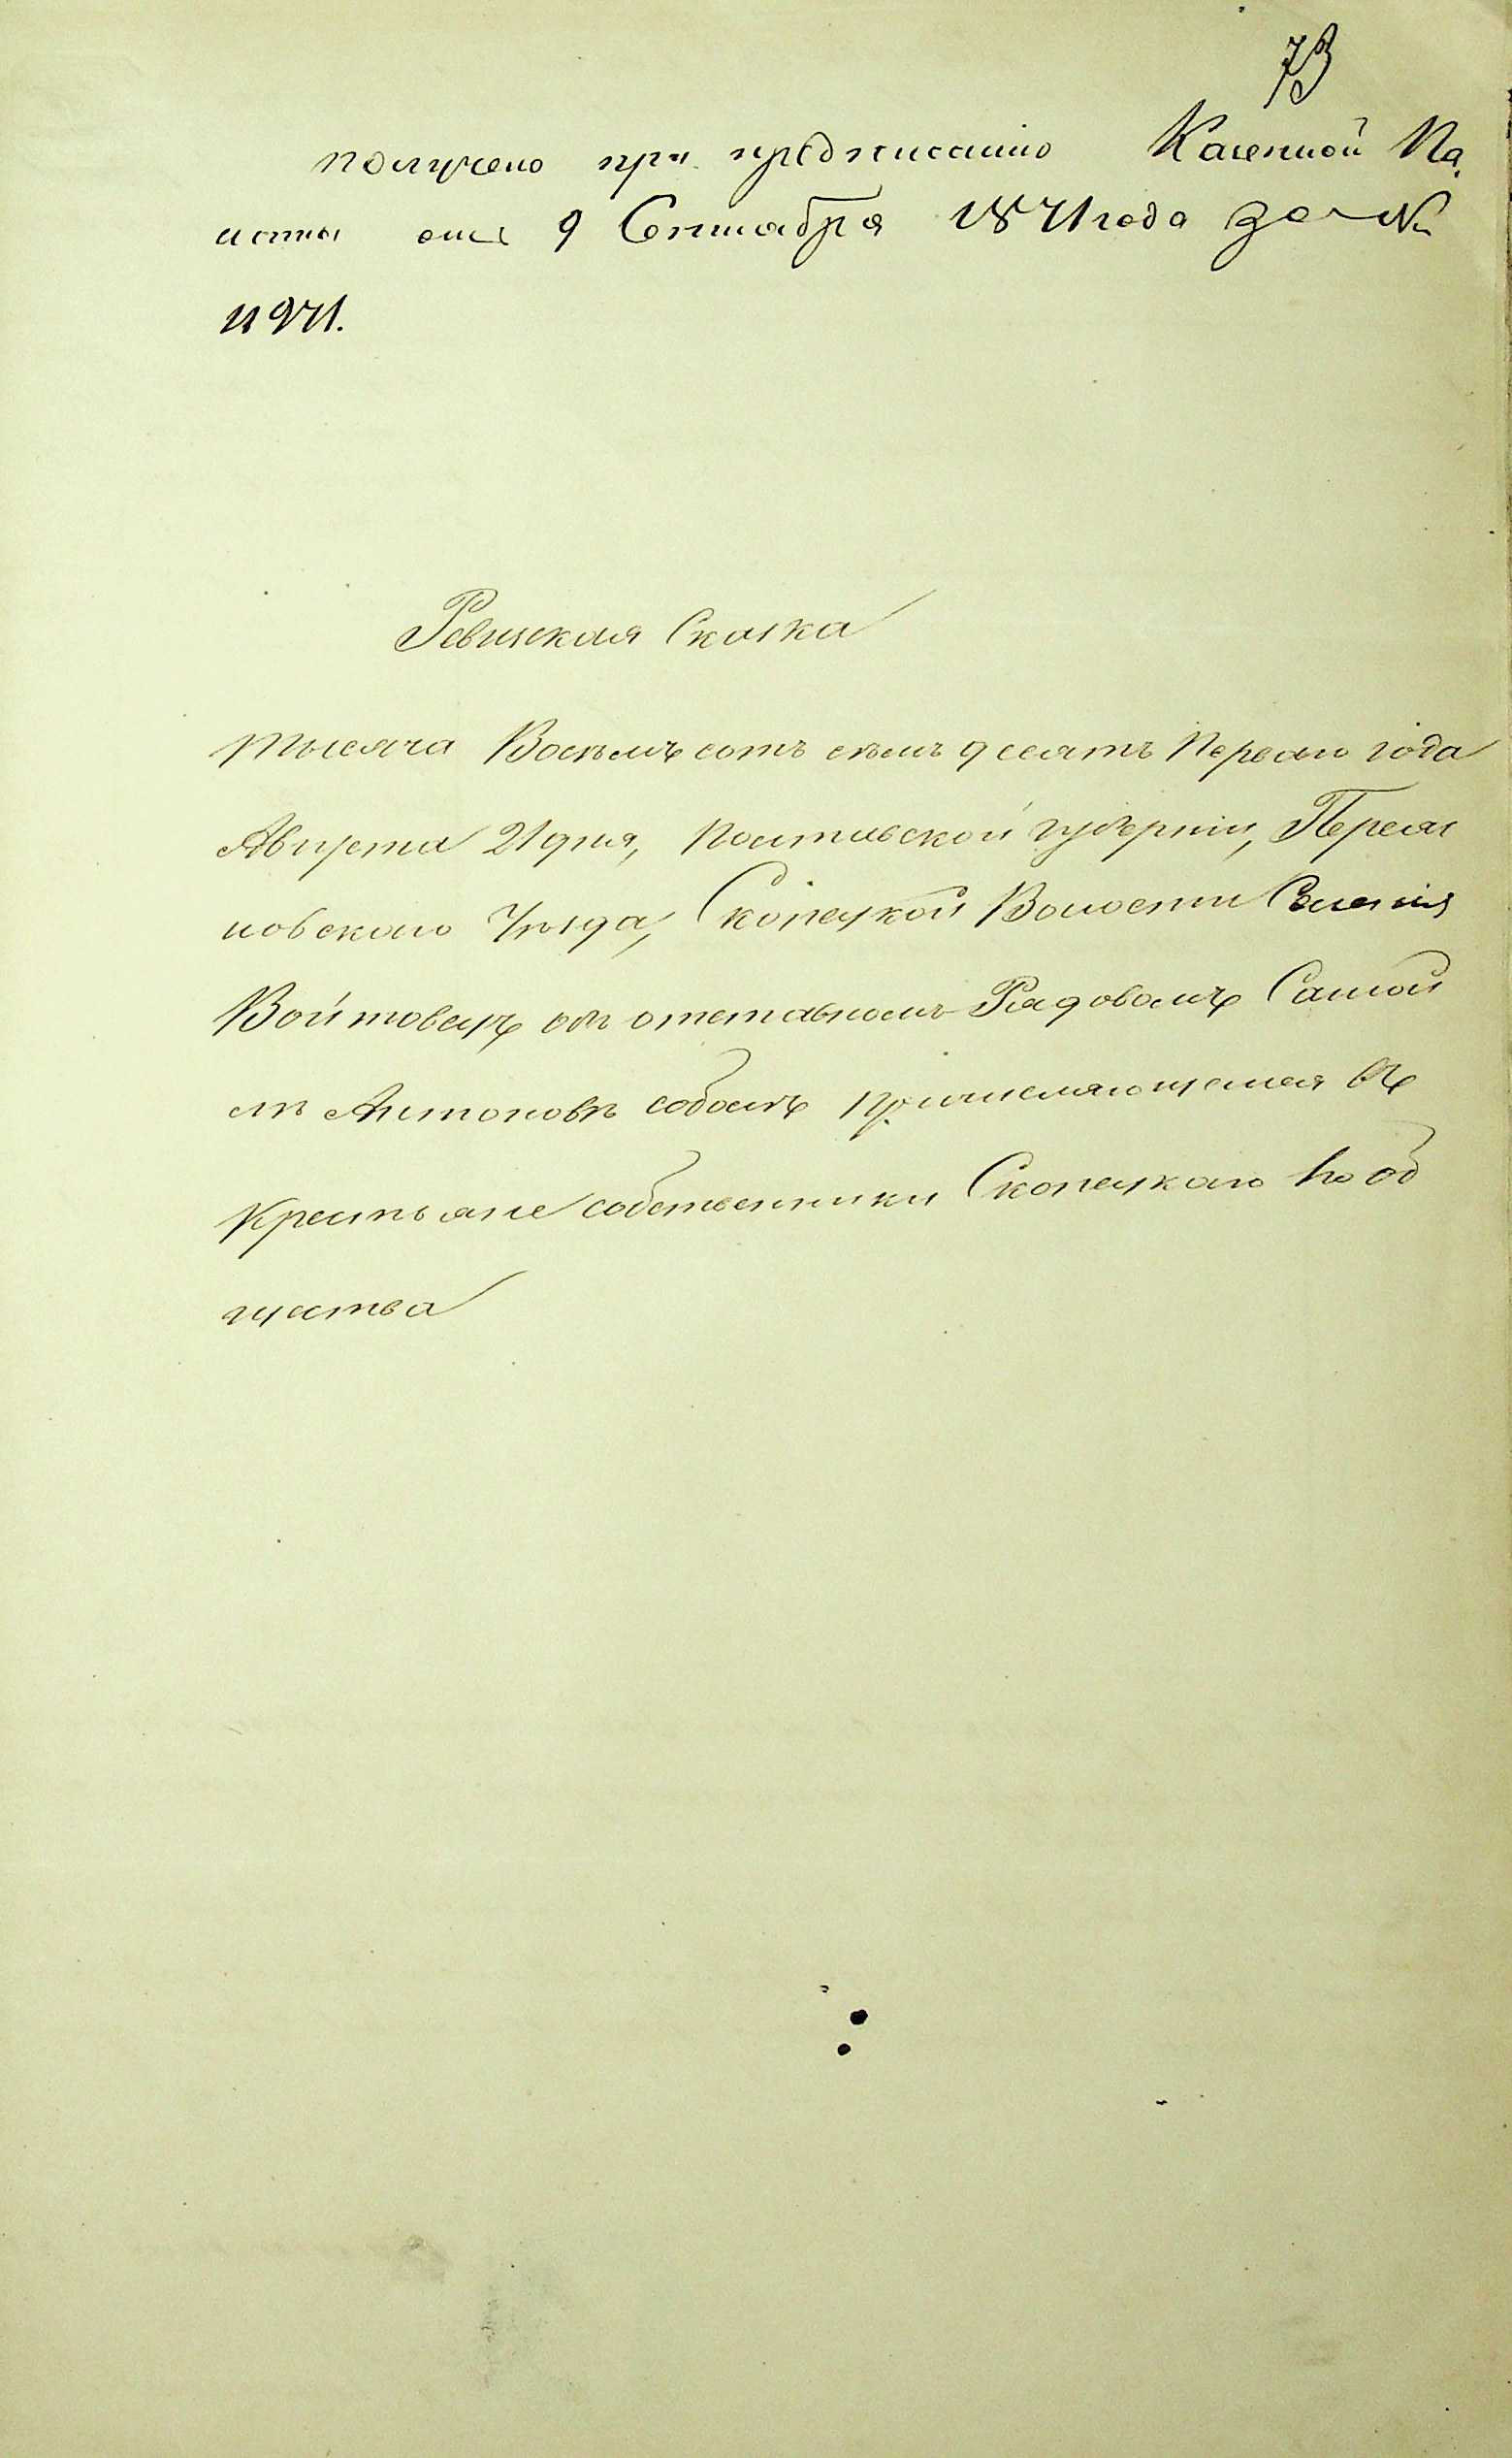 73
получено при предписанію Казенной Па
латы отъ 9 Сентября 1871 года за №
11971.
Ревизская Сказка
Тысяча Восемь сотъ семь десятъ Перваго года
Августа 21 дня, Полтавской губерніи, Переяс
ловскаго Уѣзда, Скопецкой Волости Селенія
Войтовецъ объ отставномъ Рядовомъ Самой
лѣ Антоновѣ причисляющемся въ
Крестьяне собственники Скопецкаго об
щества